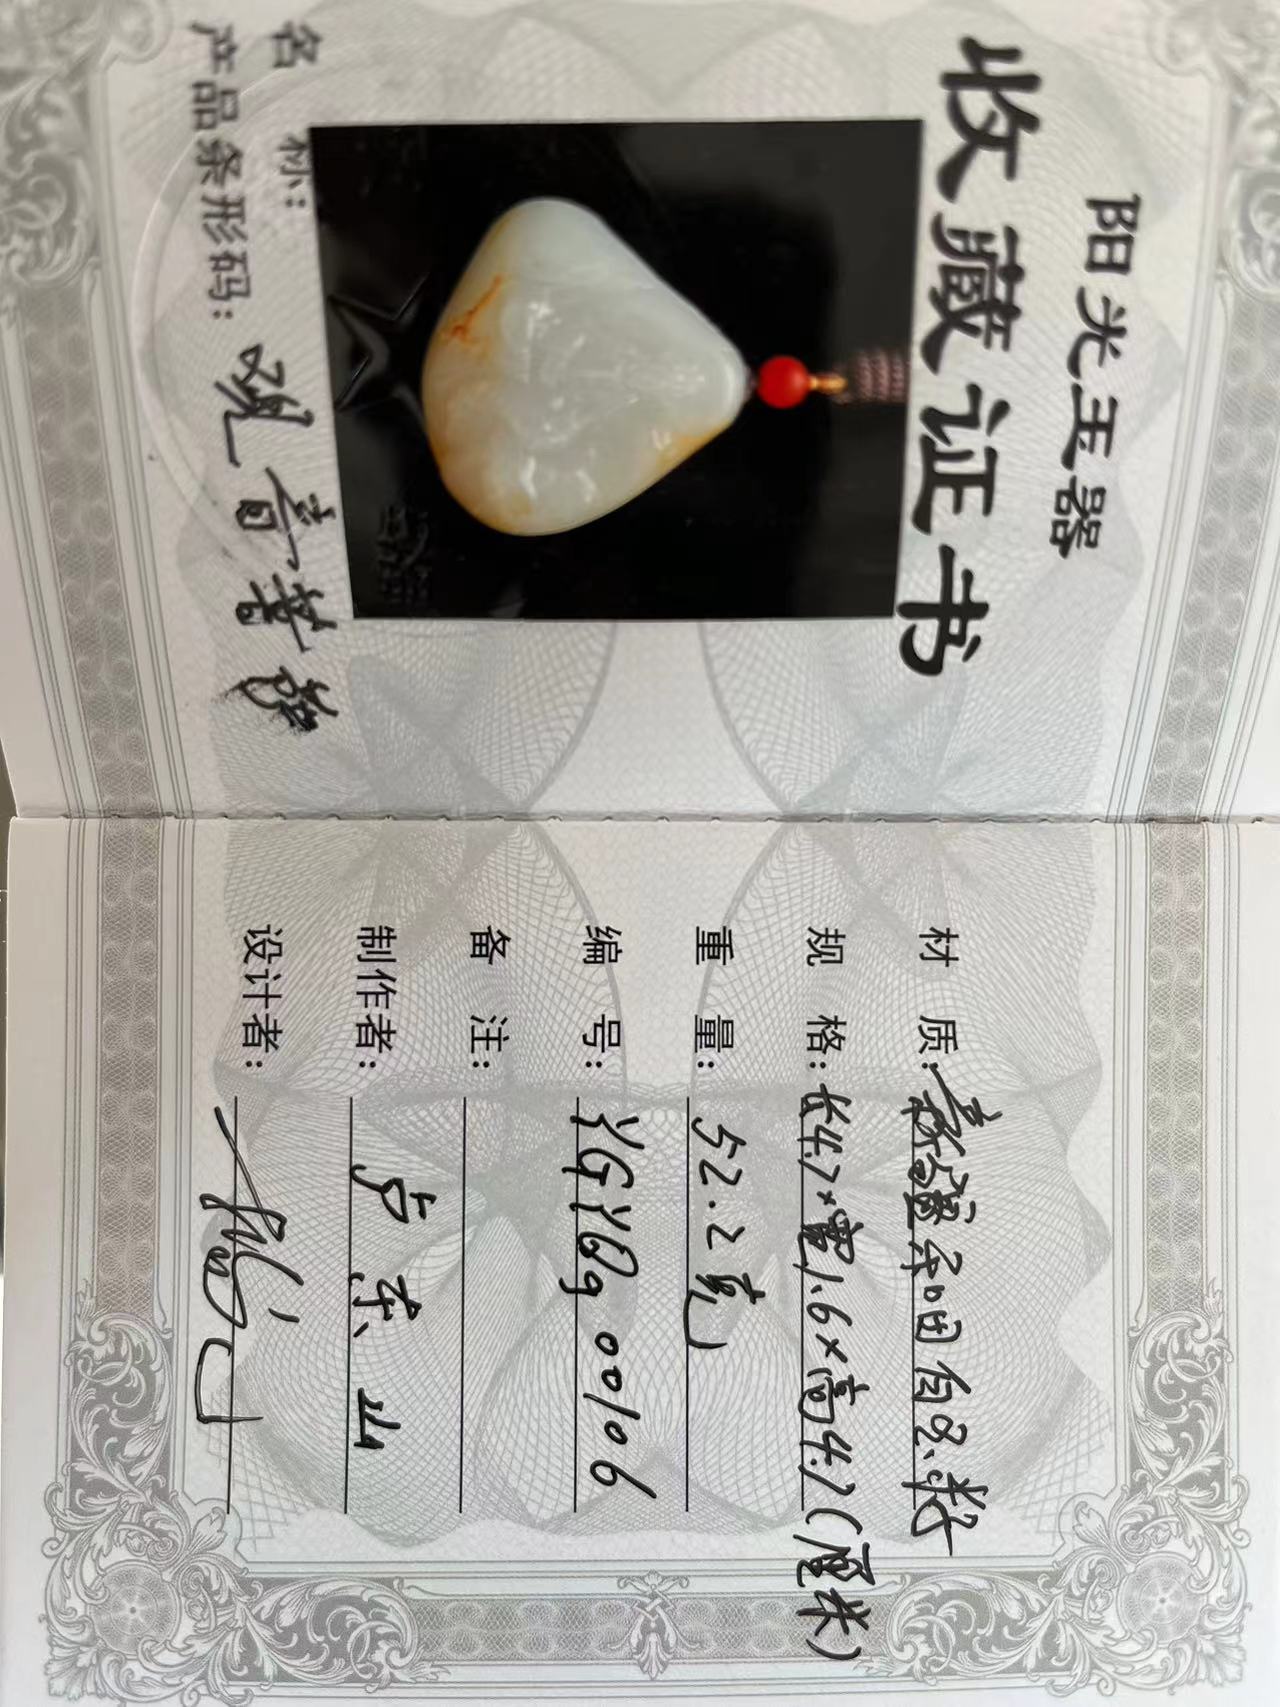 阳光玉器
收藏证书
名 称：观音菩萨
产品条形码：
材 质：新疆和田白玉籽
规 格：长4.7×宽1.6×高4.7(厘米)
重 量：52.2克
编 号：YGYQg00106
备 注：
制作者：卢东山
设计者：